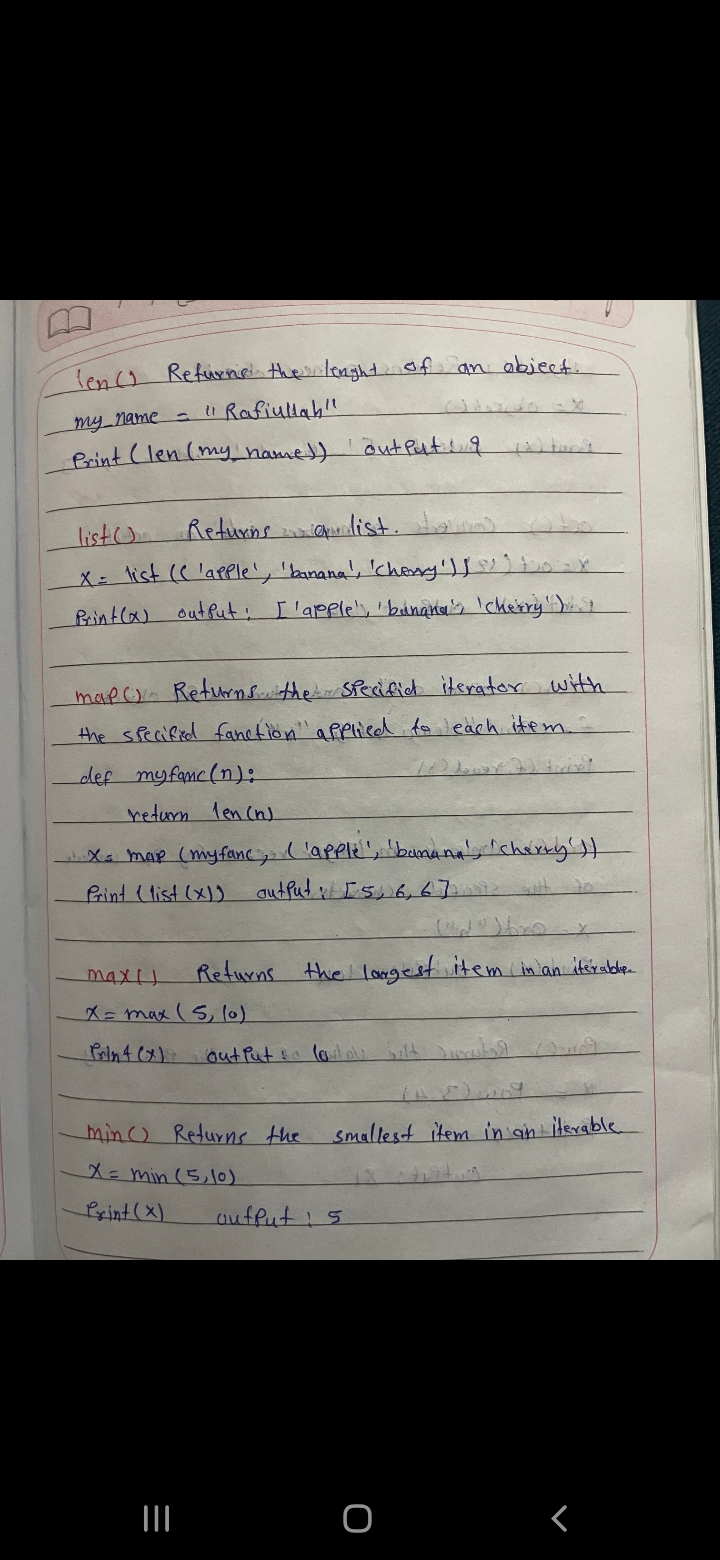 len() Returns the lenght of an object.
my_name = "Rafiullah"
Print(len(my_name)) output: 9
list() Returns a list.
x = list(('apple', 'banana', 'cherry'))
Print(x) output: ['apple', 'banana', 'cherry')
map() Returns the specified iterator with
the specified fanction applied to each item.
def myfanc(n):
return len(n)
x= map (myfanc, ('apple', 'banana', 'cherry'))
Print (list(x)) output: [5, 6, 6]
max() Returns the largest item in an iterable.
x = max(5, 10)
Print(x) output: 10
min() Returns the smallest item in an iterable
x = min(5,10)
Print(x) output: 5